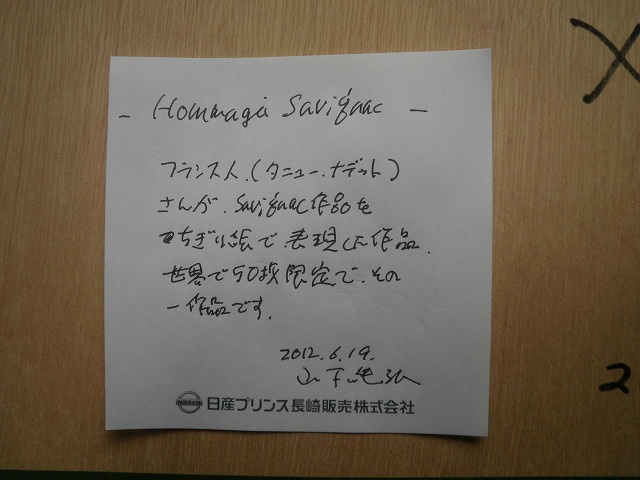 - Hommagià Savignac -
フランス人.(タニュー.ナデット)
さんが.Savignac作品を
ちぎり絵で.表現した作品.
世界で50枚限定で.その
一作品です.
2012.6.19.
山下
NISSAN 日産プリンス長崎販売株式会社
X
2